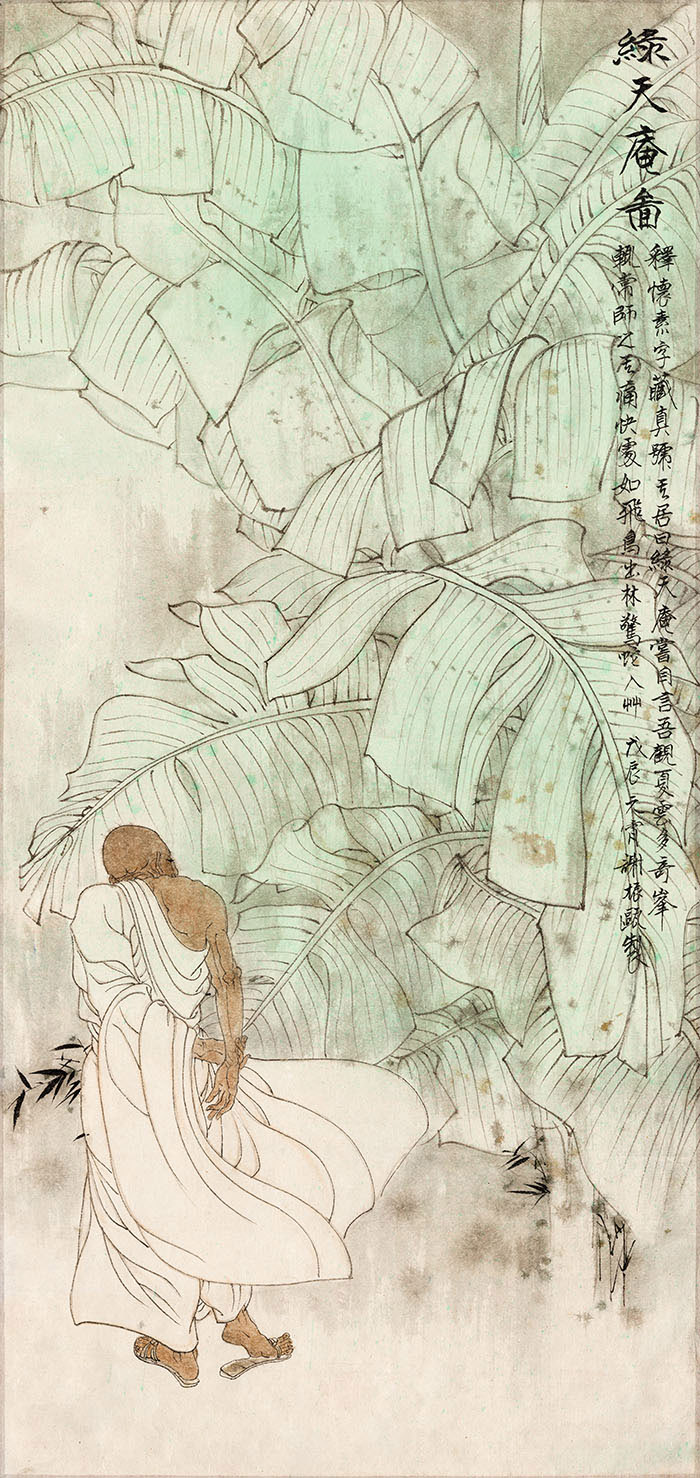 綠天庵啚
釋懷素字藏真號其居曰綠天庵嘗自言吾觀夏雲多奇峯
輒常師之其痛快處如飛鳥出林驚蛇入艸 戊辰元宵謝振甌製